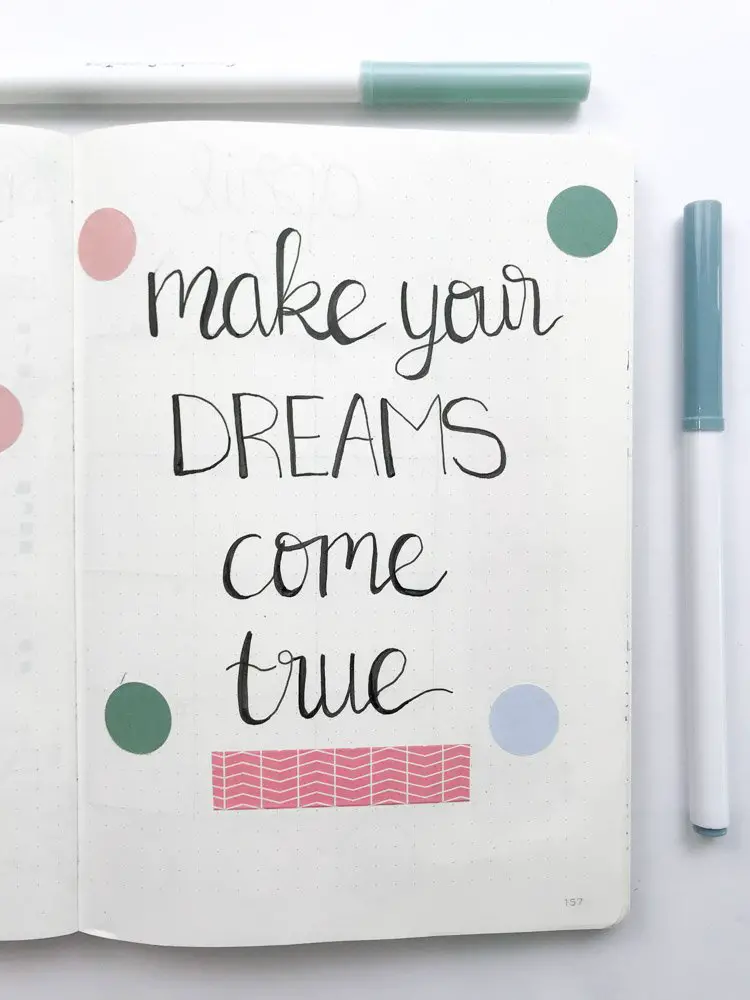 make your
DREAMS
come
true
157